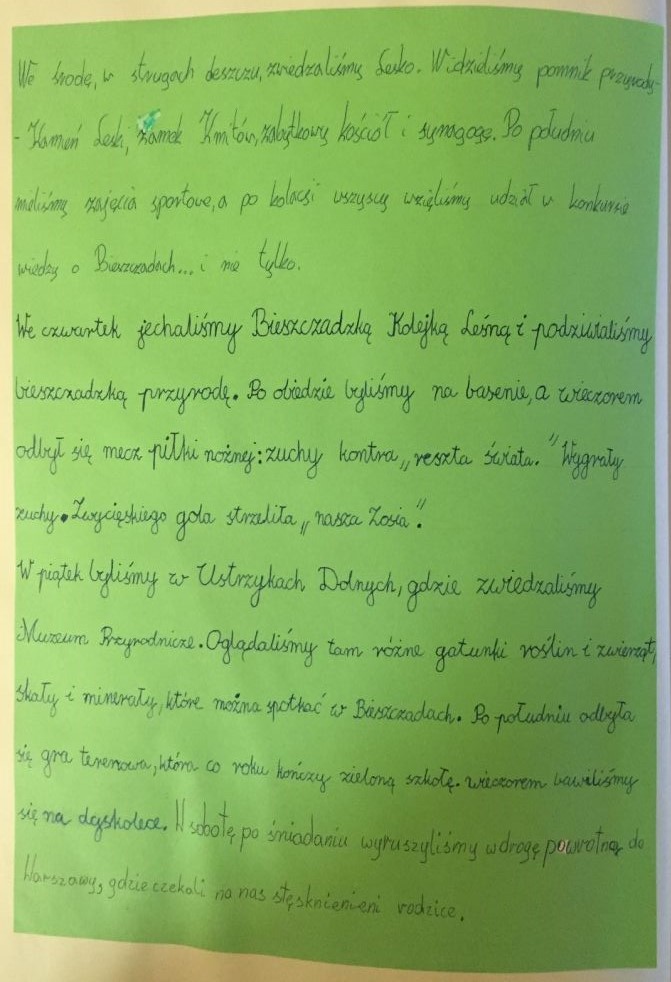 We środę, w strugach deszczu, zwiedzaliśmy Lesko. Widzieliśmy pomnik przyrody-
- Kamień Leski, zamek Kmitów, zabytkowy kościół i synagogę. Po południu
mieliśmy zajęcia sportowe, a po kolacji wszyscy wzięliśmy udział w konkursie
wiedzy o Bieszczadach... i nie tylko.
We czwartek jechaliśmy Bieszczadzką Kolejką Leśną i podziwialiśmy
bieszczadzką przyrodę. Po obiedzie byliśmy na basenie, a wieczorem
odbył się mecz piłki nożnej: zuchy kontra „reszta świata." Wygrały
zuchy. Zwycięskiego gola strzeliła „nasza Zosia".
W piątek byliśmy w Ustrzykach Dolnych, gdzie zwiedzaliśmy
Muzeum Przyrodnicze. Oglądaliśmy tam różne gatunki roślin i zwierząt,
skały i minerały, które można spotkać w Bieszczadach. Po południu odbyła
się gra terenowa, która co roku kończy zieloną szkołę. wieczorem bawiliśmy
się na dyskotece. W sobotę po śniadaniu wyruszyliśmy w drogę powrotną do
Warszawy, gdzie czekali na nas stęsknieni rodzice.